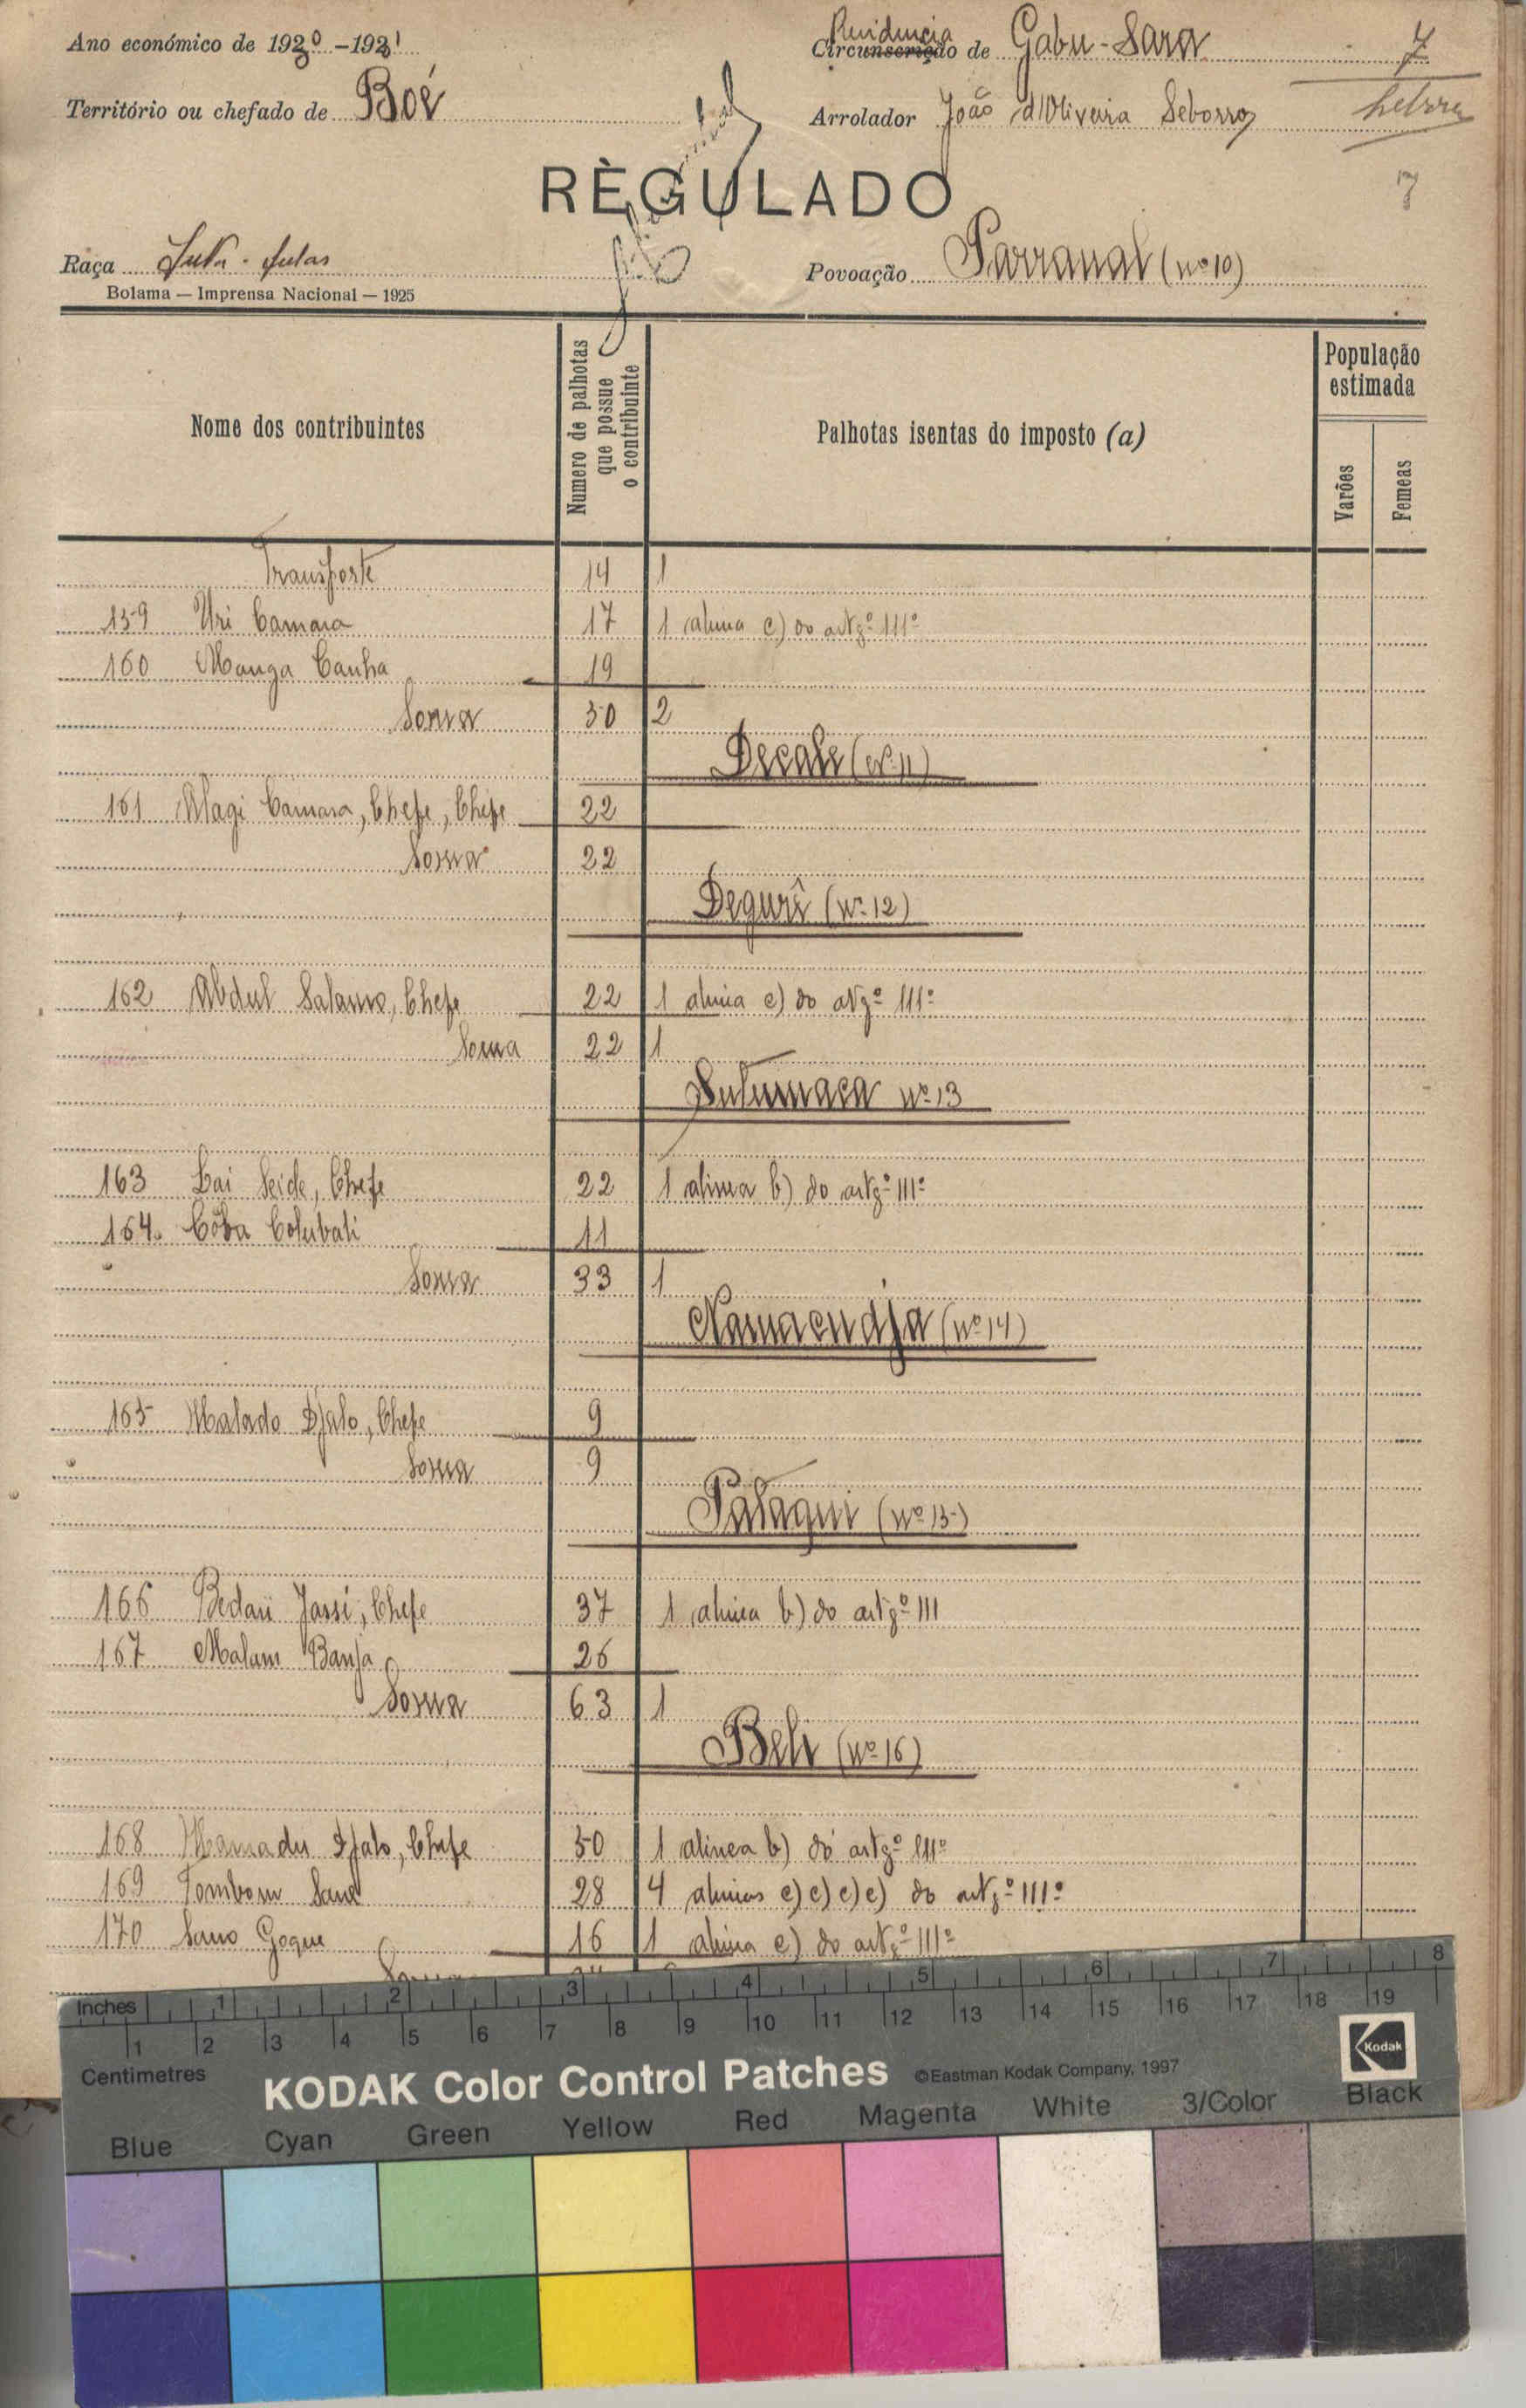 Ano económico de 1930-1931
Residencia
Circunscrição de Gabu-Sara 7
Território ou chefado de Boé
Arrolador João d'Oliveira Seborro
RÈGULADO
7
Raça Futa-fulas
Povoação Parranal (nº 10)
Bolama — Imprensa Nacional — 1925
Nome dos contribuintes
Numero de palhotas que possue o contribuinte
Palhotas isentas do imposto (a)
População estimada
Varões
Femeas
Transporte 14 1
159 Uri Camara 17 1 alinea c) do artgº IIIº
160 Manga Canha 19
Soma 50 2
Decale (nº 11)
161 Alagi Camara, Chefe, Chefe 22
Soma 22
Degurê (nº 12)
162 Abdul Salamo, Chefe 22 1 alinea c) do artgº IIIº
Soma 22 1
Sutumaca nº 13
163 Lai Seide, Chefe 22 1 alinea b) do artgº IIIº
164 Côba Colubali 11
Soma 33 1
Namaendja (nº 14)
165 Malado Djalo, Chefe 9
Soma 9
Pataqui (nº 15)
166 Bedari Jassi, Chefe 37 1 alinea b) do artgº III
167 Malam Banja 26
Soma 63 1
Beli (nº 16)
168 Mamadu Djalo, Chefe 50 1 alinea b) do artgº IIIº
169 Tombom Sané 28 4 alinias c) c) c) c) do artgº IIIº
170 Sano Goque 16 1 alinea c) do artgº IIIº
Inches 1 2 3 4 5 6 7 8
1 2 3 4 5 6 7 8 9 10 11 12 13 14 15 16 17 18 19
Centimetres
KODAK Color Control Patches ©Eastman Kodak Company, 1997
Kodak
Blue Cyan Green Yellow Red Magenta White 3/Color Black